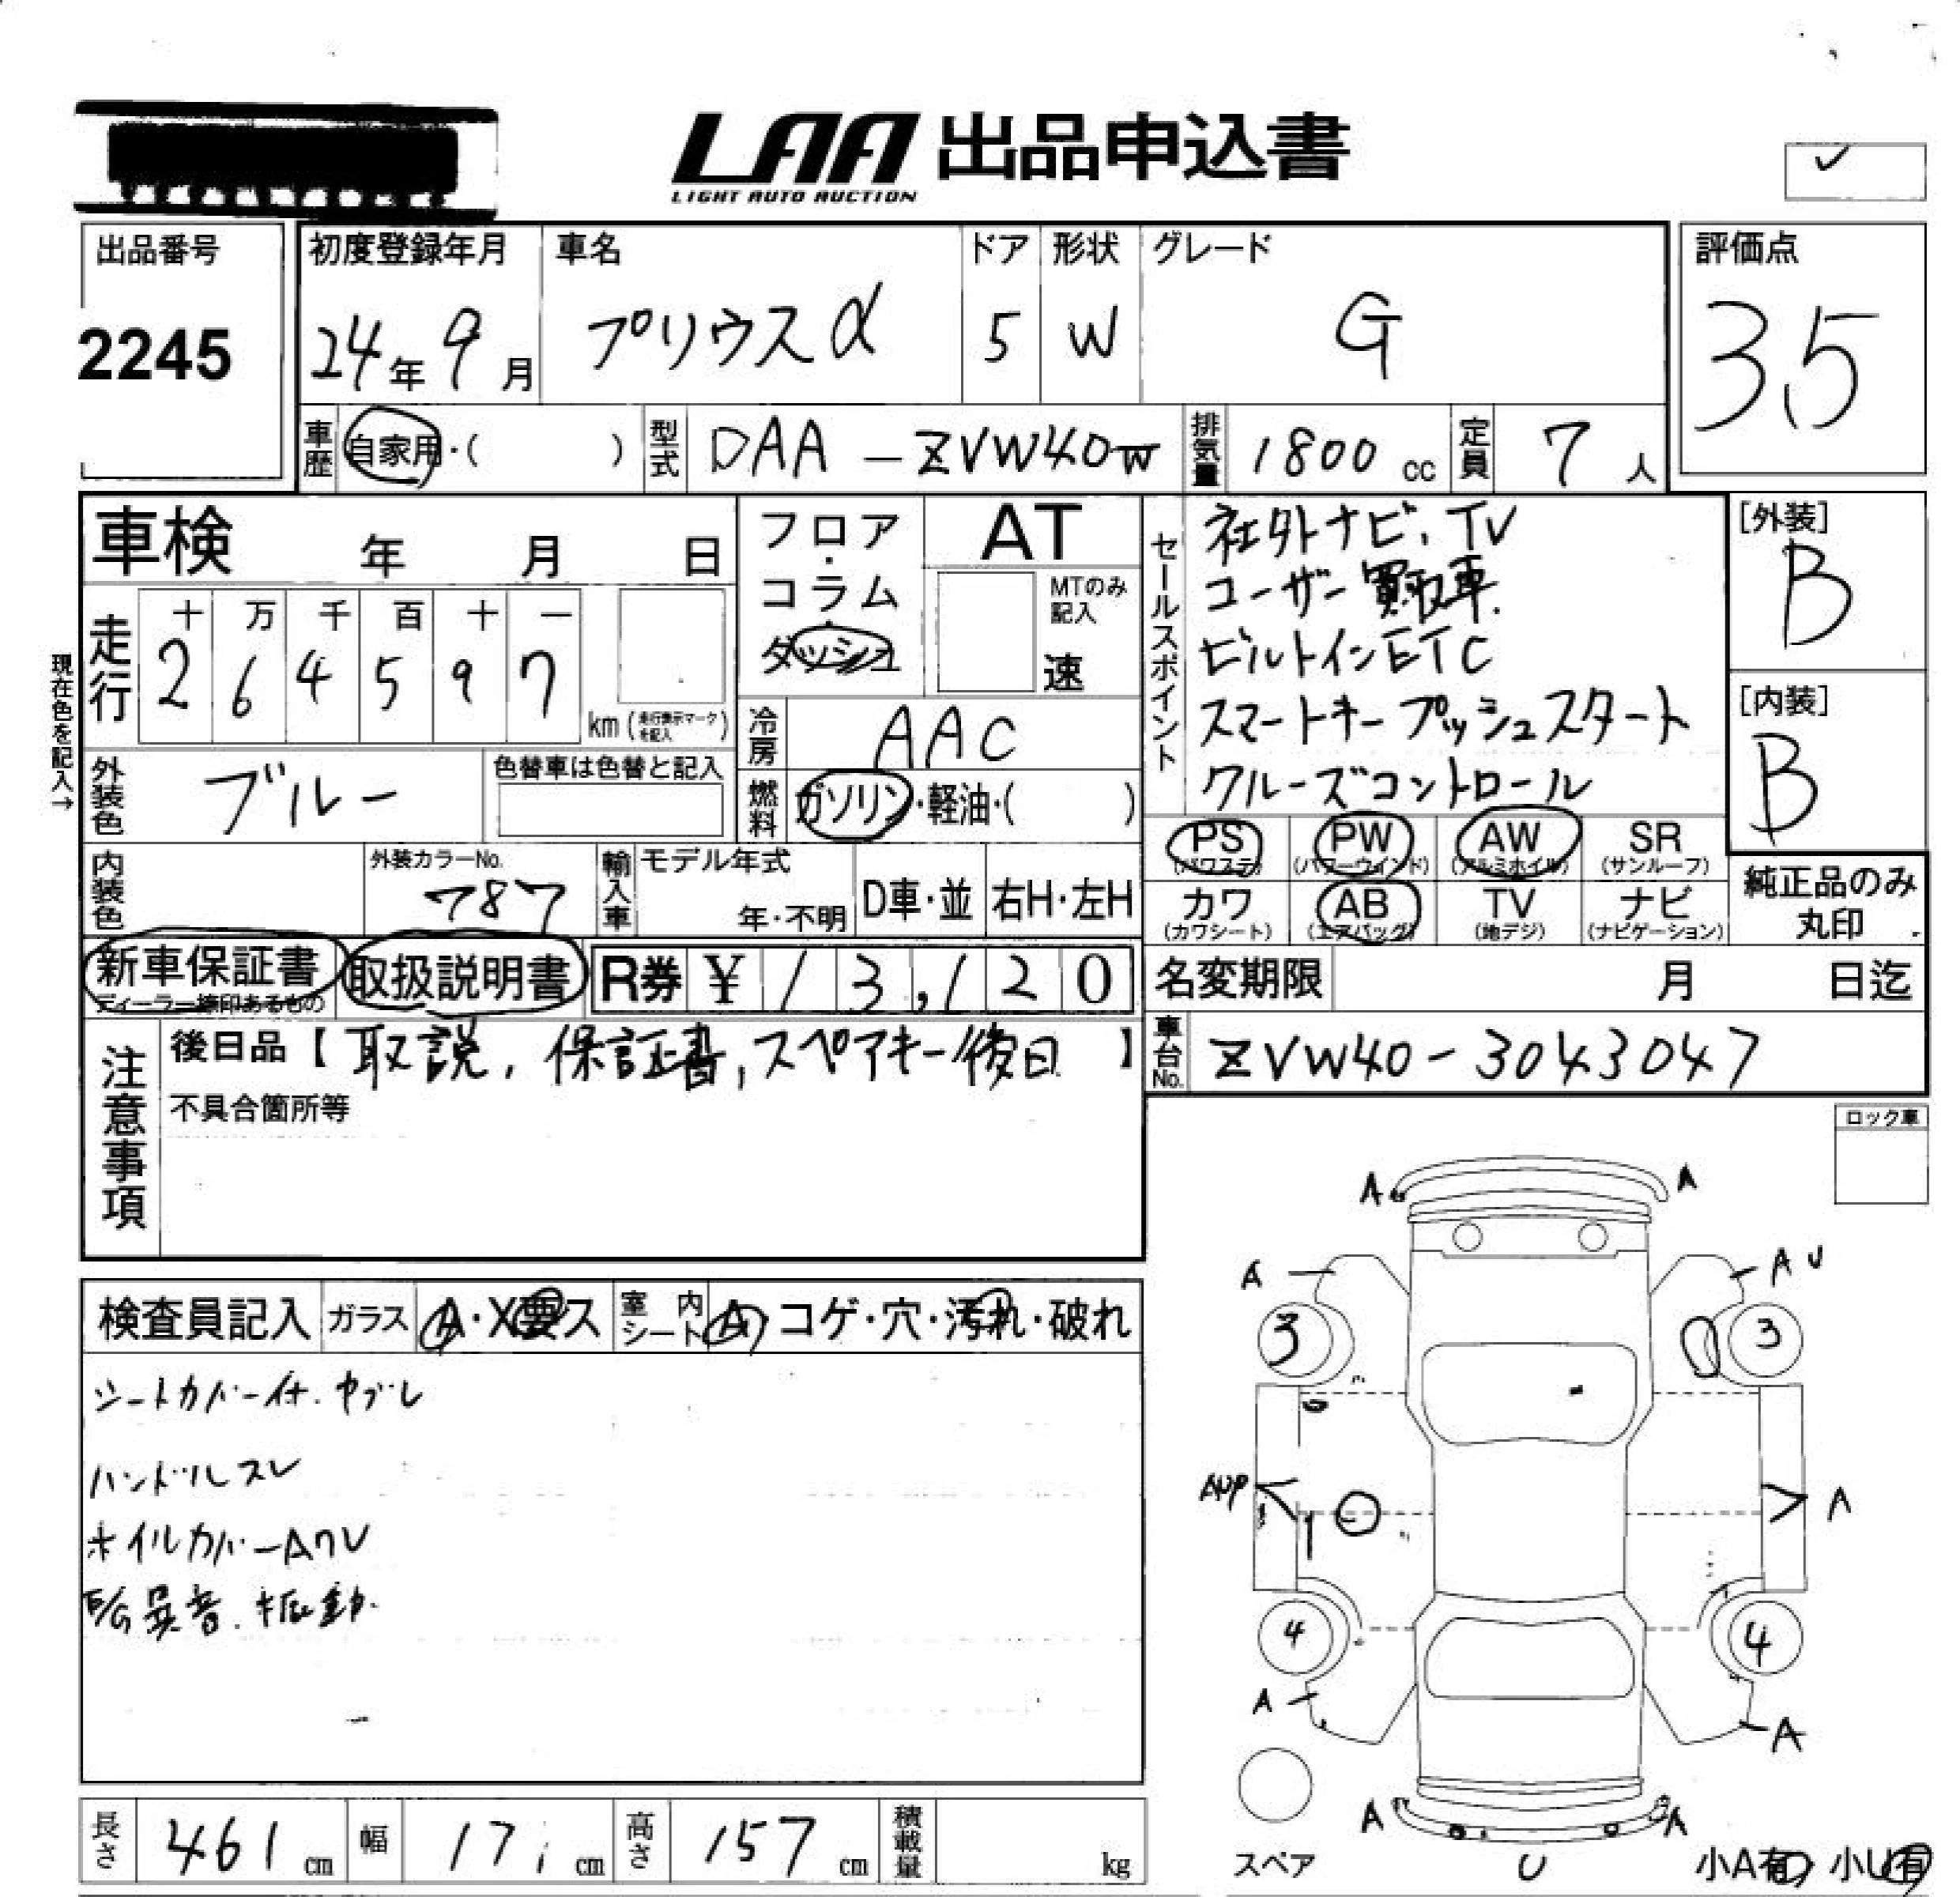 LAA 出品申込書
LIGHT AUTO AUCTION
出品番号 初度登録年月 車名 ドア 形状 グレード 評価点
2245 24年9月 プリウスα 5 W G 3.5
車歴 自家用・( ) 型式 DAA-ZVW40W 排気量 1800cc 定員 7人
車検 年 月 日
フロア・コラム・ダッシュ
AT
MTのみ記入
速
現在色を記入→
走行 十 万 千 百 十 一
2 6 4 5 9 7 km (走行表示マークを記入)
冷房 AAC
燃料 ガソリン・軽油・( )
外装色 ブルー 色替車は色替と記入
内装色 外装カラーNo. 787 輸入車 モデル年式 年・不明 D車・並 右H・左H
セールスポイント
社外ナビ、TV
ユーザー買取車.
ビルトインETC
スマートキー プッシュスタート
クルーズコントロール
[外装] B
[内装] B
PS (パワステ) PW (パワーウィンド) AW (アルミホイル) SR (サンルーフ)
カワ (カワシート) AB (エアバッグ) TV (地デジ) ナビ (ナビゲーション)
純正品のみ丸印
新車保証書 取扱説明書 R券 ¥13,120
ディーラー捺印あるもの
名変期限 月 日迄
注意事項
後日品【取説, 保証書, スペアキー後日】
車台No. ZVW40-3043047
不具合箇所等
ロック車
検査員記入 ガラス A・X要ス 室内シート A・コゲ・穴・汚れ・破れ
シートカバー付. ヤブレ
ハンドルスレ
ホイルカバーAワレ
E/G異音. 振動.
A A
A A U
3 3
AUP A
4 4
A A
A A
U
スペア
小A有 小U有
長さ 461cm 幅 cm 高さ 157cm 積載量 kg